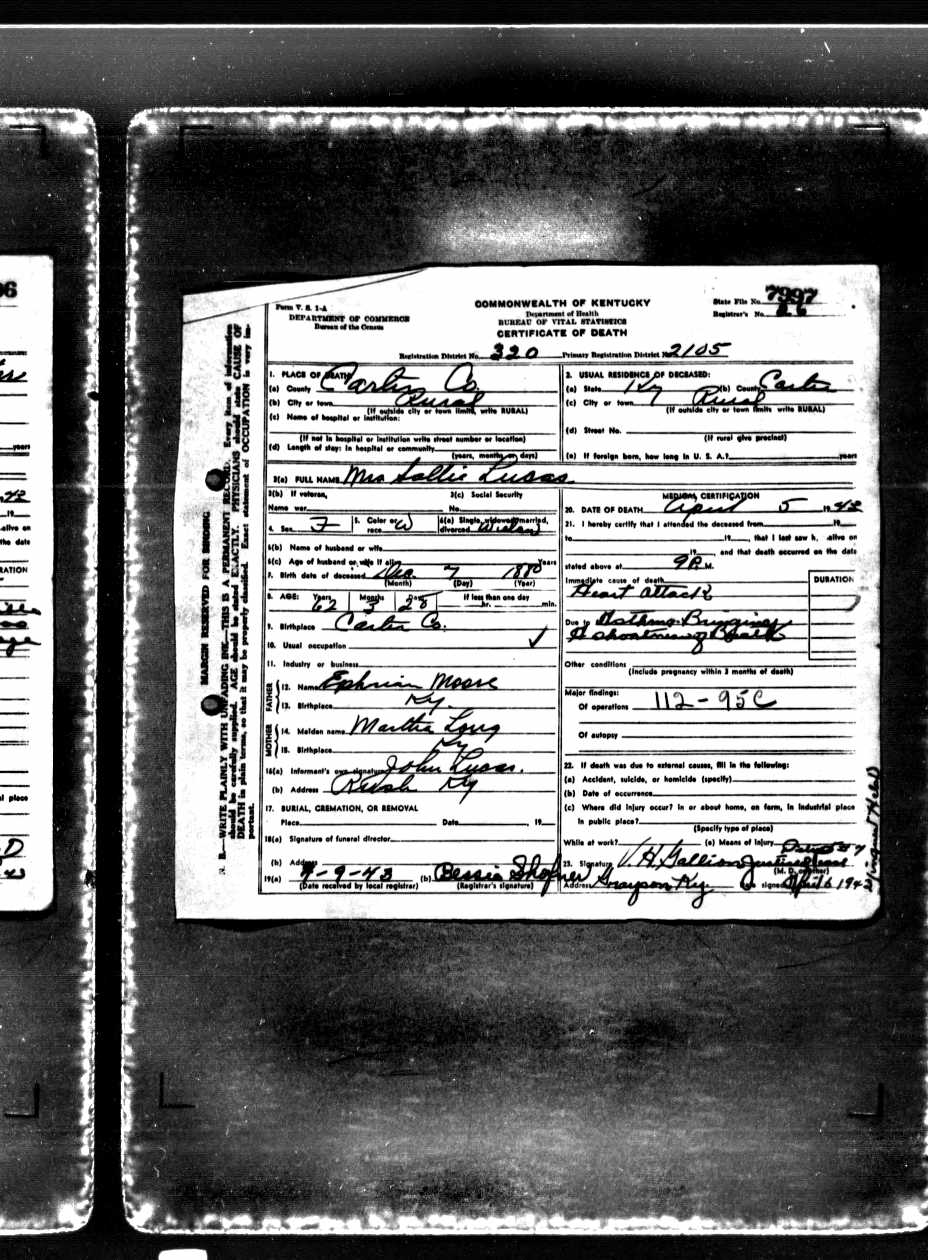 06
years
alive on
the date
RATION
al place
N. B.—WRITE PLAINLY WITH UNFADING INK—THIS IS A PERMANENT RECORD. Every item of information
should be carefully supplied. AGE should be stated EXACTLY. PHYSICIANS should state CAUSE OF
DEATH in plain terms, so that it may be properly classified. Exact statement of OCCUPATION is very im-
portant.
MARGIN RESERVED FOR BINDING
Form V. S. 1-A
DEPARTMENT OF COMMERCE
Bureau of the Census
COMMONWEALTH OF KENTUCKY
Department of Health
BUREAU OF VITAL STATISTICS
CERTIFICATE OF DEATH
State File No. 7997
Registrar's No. 26
Registration District No. 320 Primary Registration District No. 2105
1. PLACE OF DEATH
(a) County Carter Co.
(b) City or town Rural
(If outside city or town limits, write RURAL)
(c) Name of hospital or institution:
(If not in hospital or institution write street number or location)
(d) Length of stay: In hospital or community
(years, months or days)
2. USUAL RESIDENCE OF DECEASED:
(a) State Ky (b) County Carter
(c) City or town Rural
(If outside city or town limits write RURAL)
(d) Street No.
(If rural give precinct)
(e) If foreign born, how long in U. S. A.? years
3(a) FULL NAME Mrs Sallie Lucas
3(b) If veteran, 3(c) Social Security
Name war No.
4. Sex F 5. Color or race W 6(a) Single, widowed, married, divorced Widow
6(b) Name of husband or wife
6(c) Age of husband or wife if alive Years
7. Birth date of deceased Dec. 7 1880
(Month) (Day) (Year)
8. AGE: Years 62 Months 3 Days 28 If less than one day hr. min.
9. Birthplace Carter Co.
10. Usual occupation
11. Industry or business
FATHER
12. Name Ephriam Moore
13. Birthplace Ky.
MOTHER
14. Maiden name Martha Long
15. Birthplace Ky
16(a) Informant's own signature John Lucas.
(b) Address Rush Ky
17. BURIAL, CREMATION, OR REMOVAL
Place Date , 19
18(a) Signature of funeral director
(b) Address
19(a) 4-9-43 (b) Bessie Shofner
(Date received by local registrar) (Registrar's signature)
MEDICAL CERTIFICATION
20. DATE OF DEATH April 5 1943
21. I hereby certify that I attended the deceased from 19
to 19 , that I last saw h. alive on
19 , and that death occurred on the date
stated above at 9 P. M.
Immediate cause of death DURATION
Heart Attack
Due to Asthma Bringing
Shortness of Breath
Other conditions
(Include pregnancy within 3 months of death)
Major findings:
Of operations 112-95C
Of autopsy
22. If death was due to external causes, fill in the following:
(a) Accident, suicide, or homicide (specify)
(b) Date of occurrence
(c) Where did injury occur? In or about home, on farm, in industrial place
in public place?
(Specify type of place)
While at work? (e) Means of Injury
23. Signature V. H. Gallion Justice Peace
(M. D. or other)
Address Grayson Ky. Date signed April 6 1943